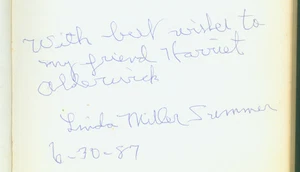 With best wishes to
my friend Harriet
Alderwick
Linda Miller Summer
6-30-87